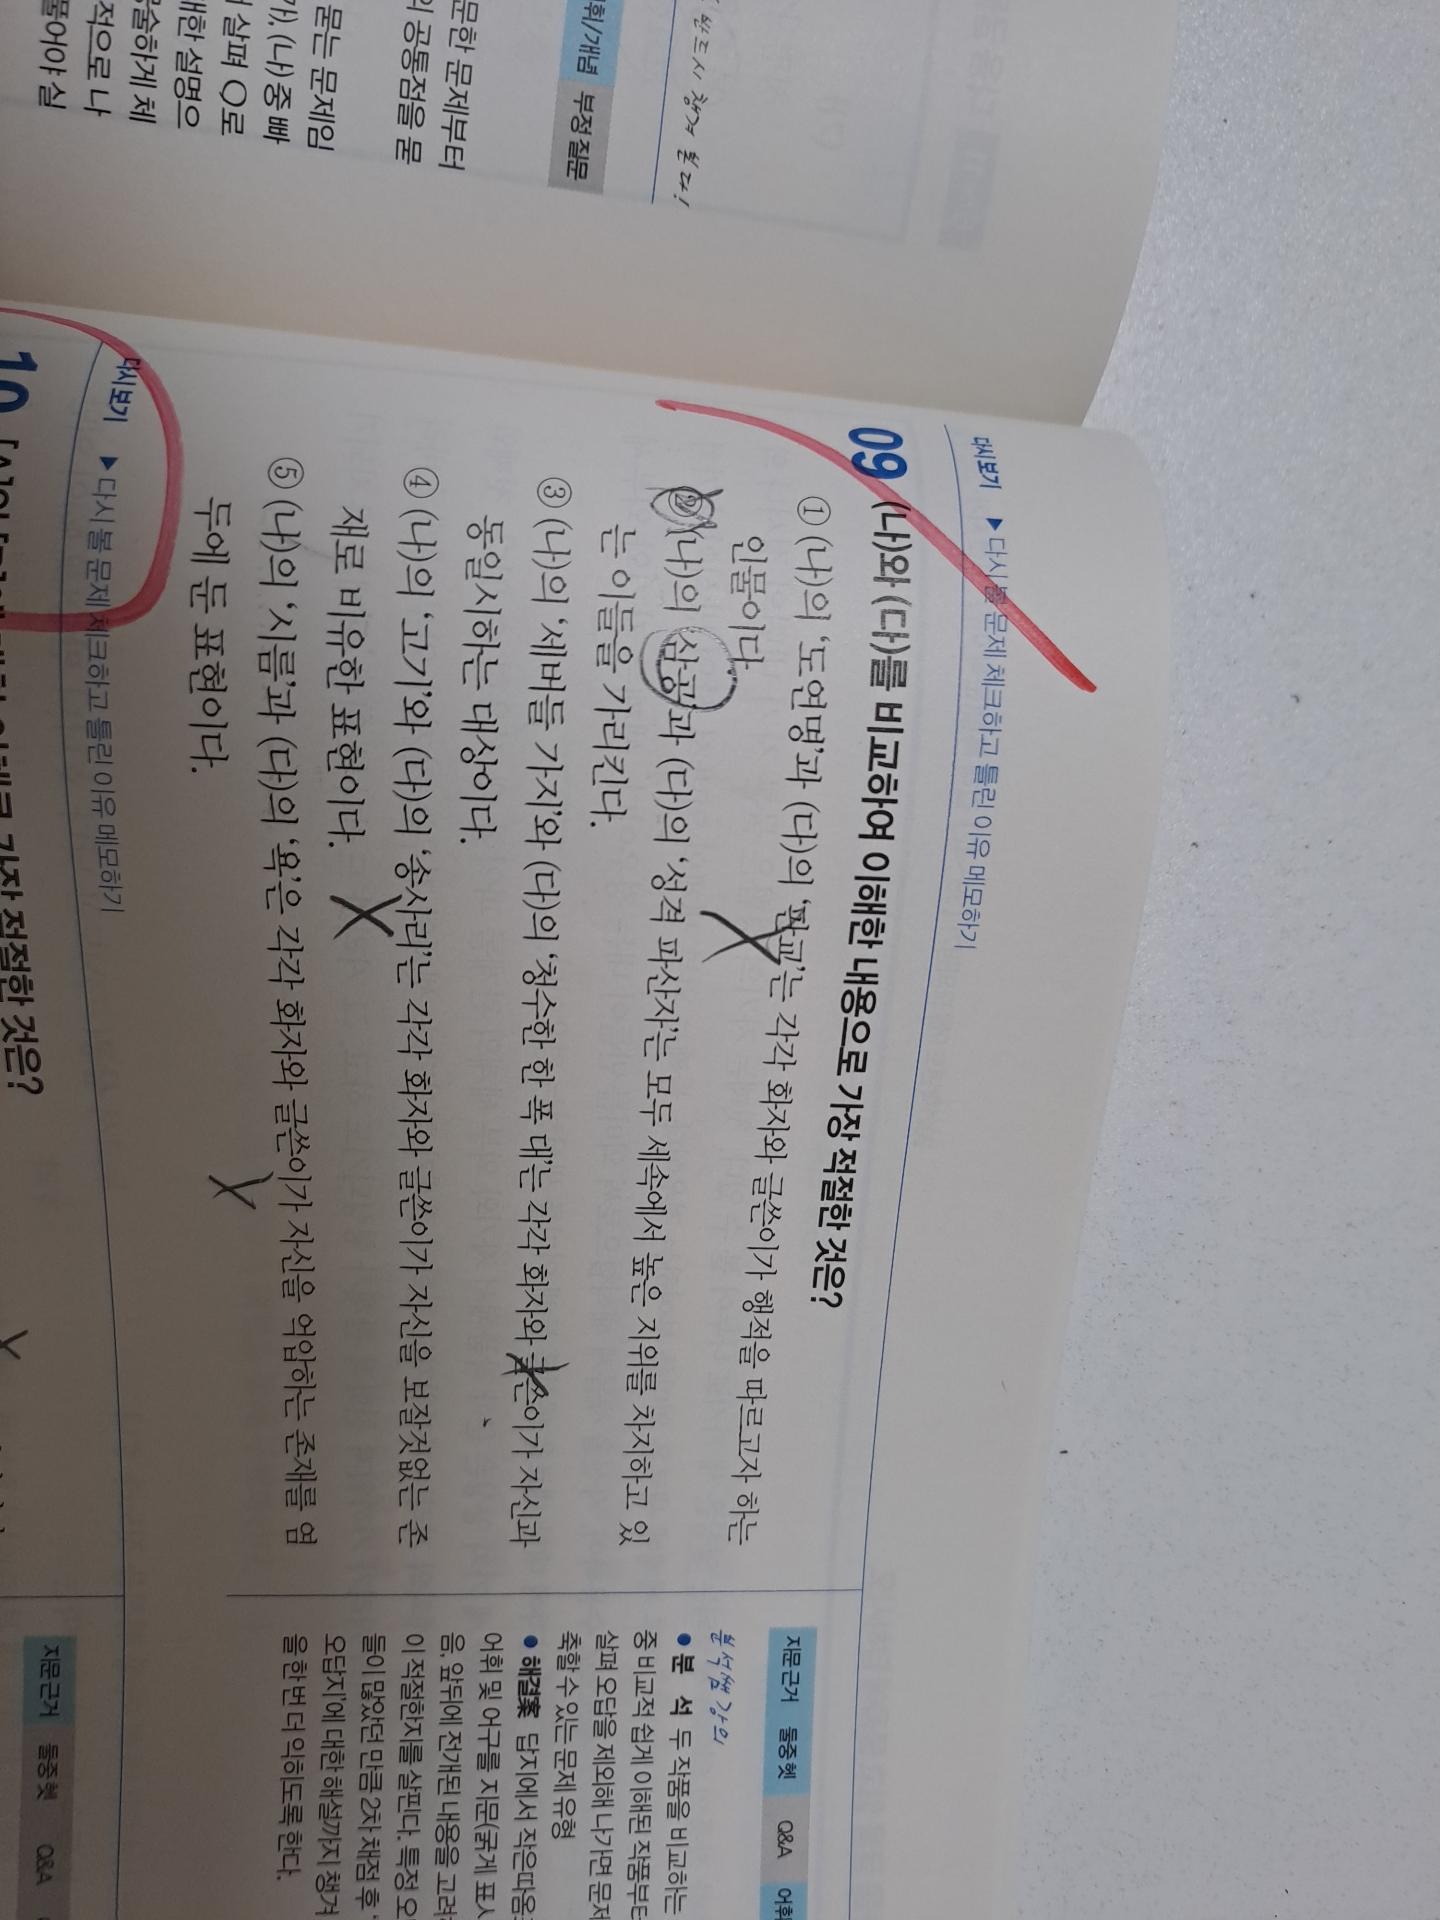 반드시 챙겨 본다!
휘/개념 부정 질문
문한 문제부터
의 공통점을 묻
묻는 문제임
가), (나) 중 빠
살펴 O로
대한 설명으
술하게 체
적으로 나
풀어야 실
다시보기 ▶다시 볼 문제 체크하고 틀린 이유 메모하기
09 (나)와 (다)를 비교하여 이해한 내용으로 가장 적절한 것은?
① (나)의 '도연명'과 (다)의 '판교'는 각각 화자와 글쓴이가 행적을 따르고자 하는
인물이다.
② (나)의 '삼공'과 (다)의 '성격 파산자'는 모두 세속에서 높은 지위를 차지하고 있
는 이들을 가리킨다.
③ (나)의 '세버들 가지'와 (다)의 '청수한 한 폭 대'는 각각 화자와 글쓴이가 자신과
동일시하는 대상이다.
④ (나)의 '고기'와 (다)의 '송사리'는 각각 화자와 글쓴이가 자신을 보잘것없는 존
재로 비유한 표현이다.
⑤ (나)의 '시름'과 (다)의 '욕'은 각각 화자와 글쓴이가 자신을 억압하는 존재를 염
두에 둔 표현이다.
지문근거 둘중헷 Q&A 어휘
분석쌤 강의
● 분 석 두 작품을 비교하는
중 비교적 쉽게 이해된 작품부터
살펴 오답을 제외해 나가면 문제
축할 수 있는 문제 유형
● 해결案 답지에서 작은따옴
어휘 및 어구를 지문(굵게 표시
음, 앞뒤에 전개된 내용을 고려
이 적절한지를 살핀다. 특정 오
들이 많았던 만큼 2차 채점 후
오답지'에 대한 해설까지 챙겨
을 한 번 더 익히도록 한다.
다시보기 ▶다시 볼 문제 체크하고 틀린 이유 메모하기
10
가장 적절한 것은?
지문근거 둘중헷 Q&A